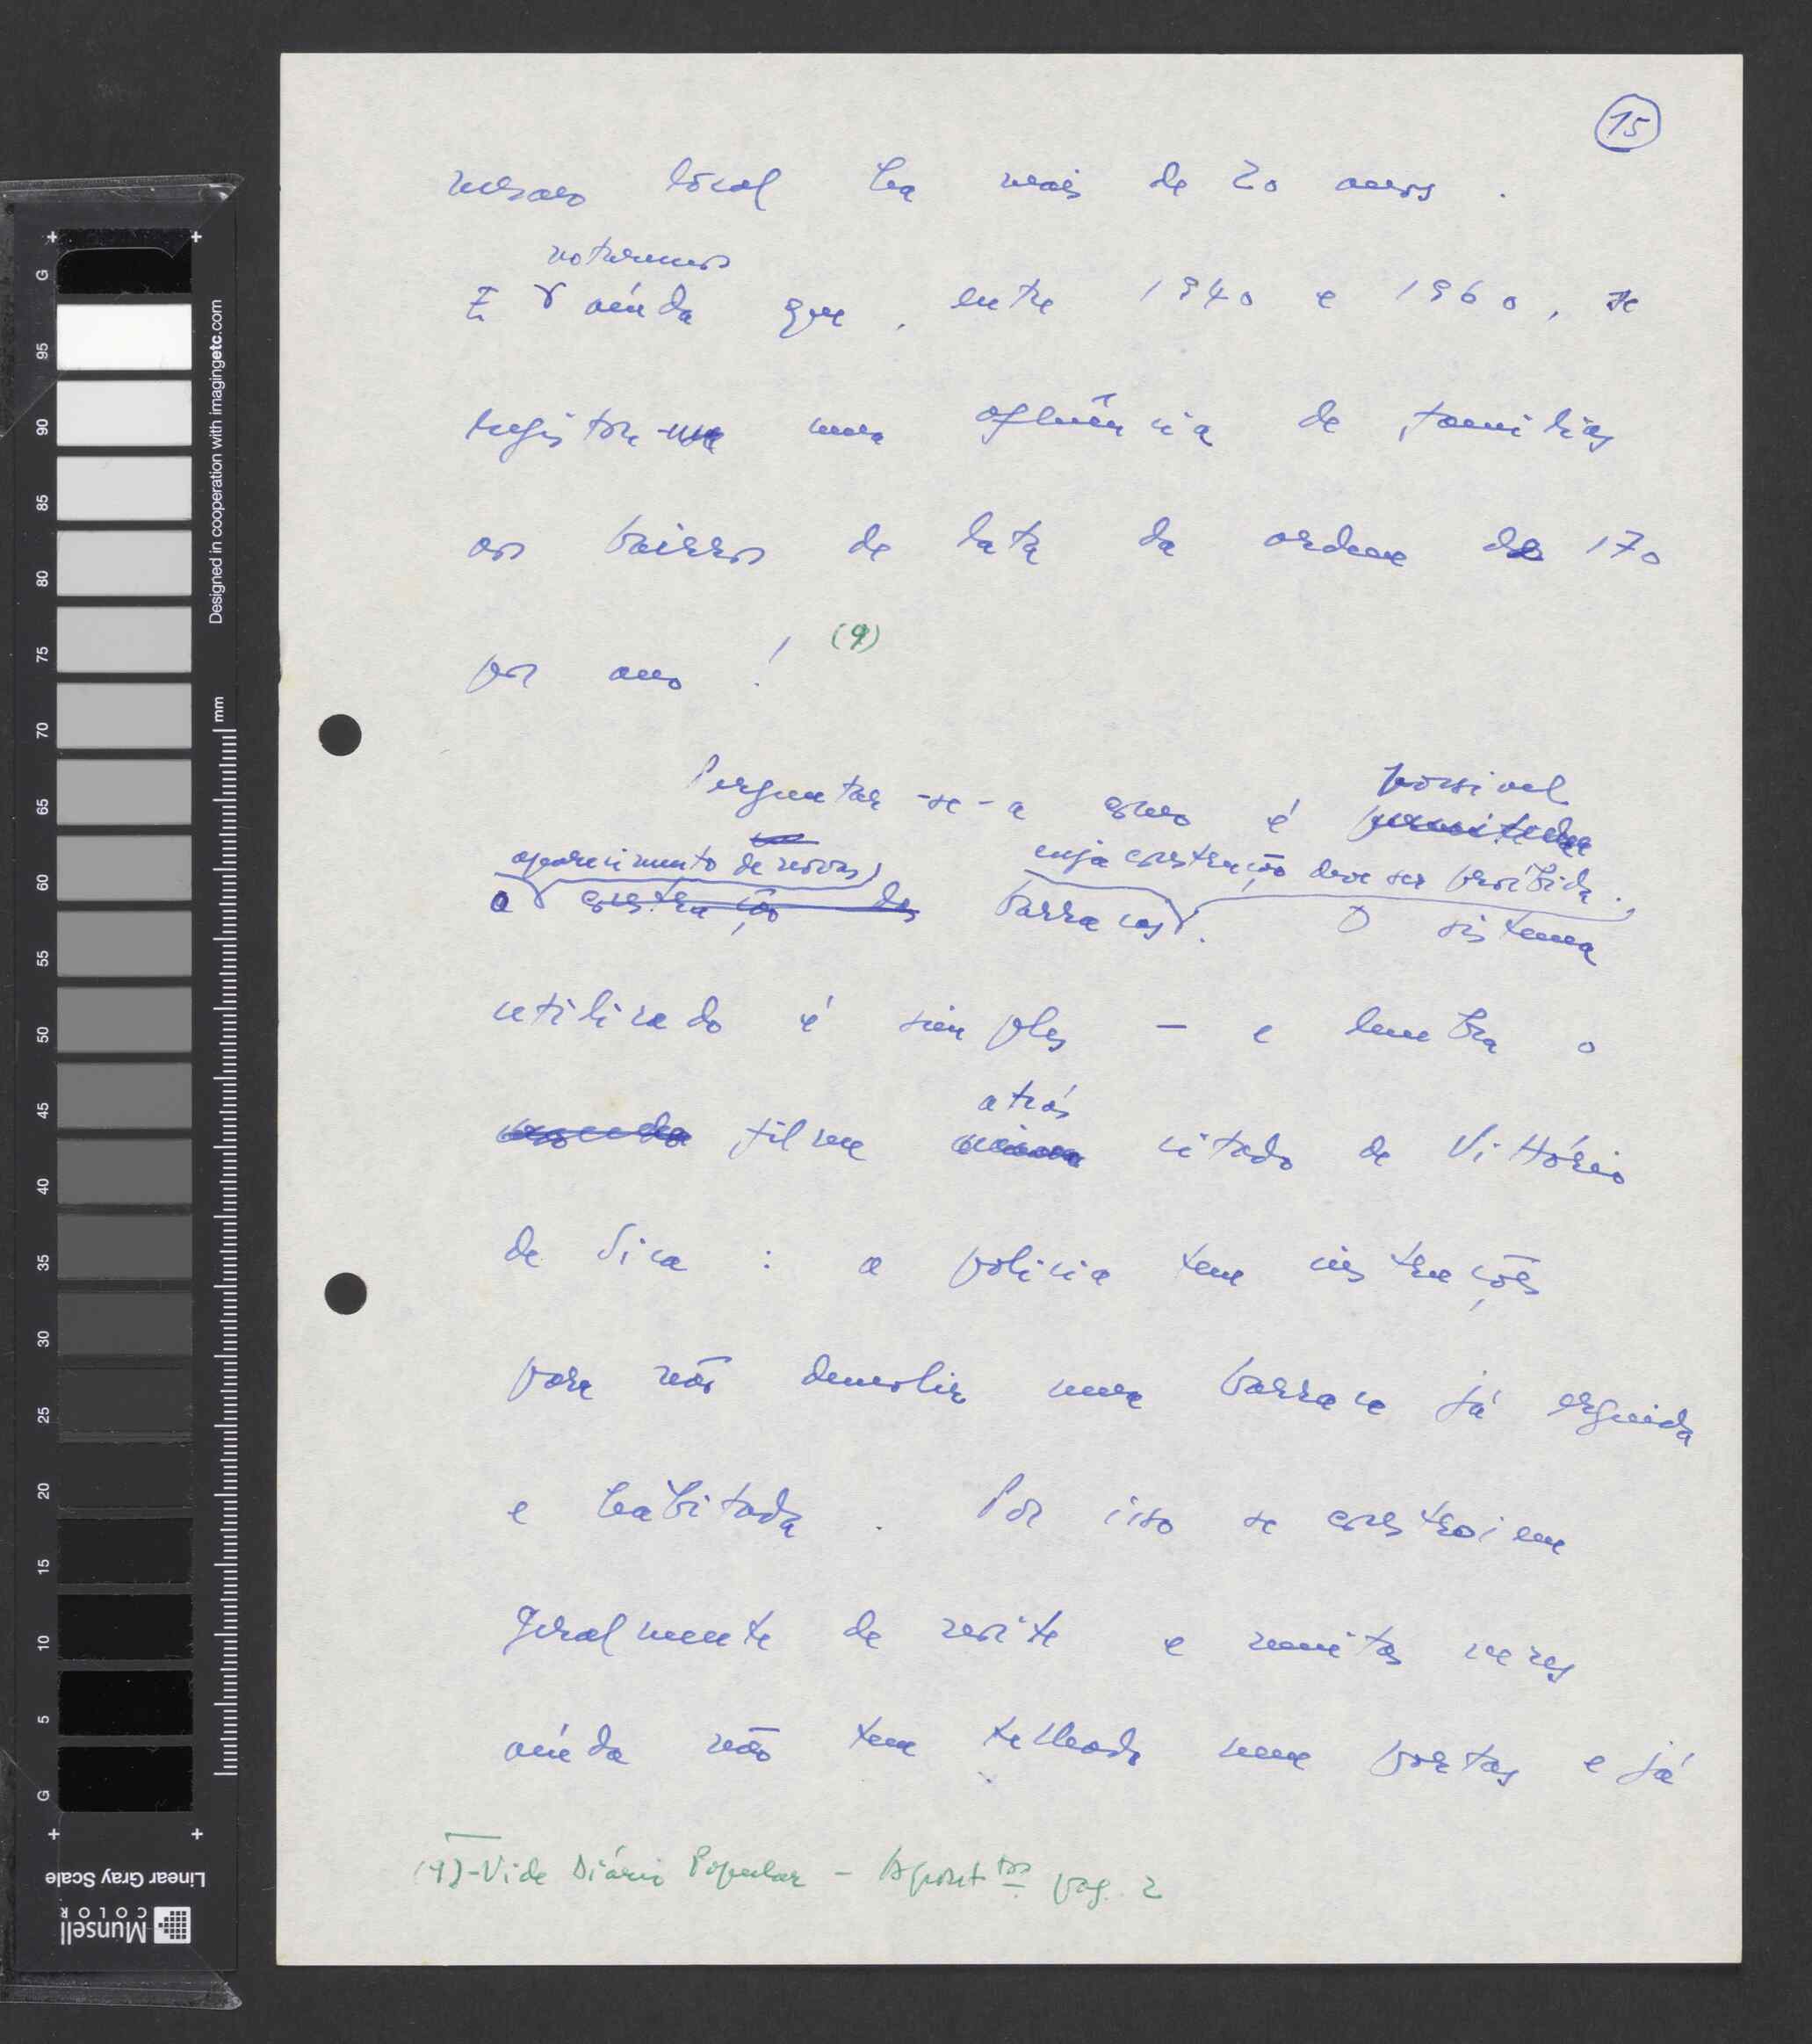 15
mesmo local há mais de 20 anos.
notaremos
E ainda que, entre 1940 e 1960, se
registou uma afluência de famílias
aos bairros de lata da ordem das 170
por ano! (9)
Perguntar-se-á como é possivel
permitida
aparecimento de novas cuja construção deve ser proíbida.
o construção das barracas. O sistema
utilizado é simples — e lembra o
filme atrás citado de Vittório
de Sica : a policia tem instruções
para não demolir uma barraca já erguida
e habitada. Por isso se constroiem
geralmente de noite e muitas vezes
ainda não tem telhado nem portas e já
(9)-Vide Diário Popular - Apont.tos pag. 2
Designed in cooperation with imagingetc.com
mm
G 95 90 85 80 75 70 65 60 55 50 45 40 35 30 25 20 15 10 5 G
Linear Gray Scale
Munsell
COLOR